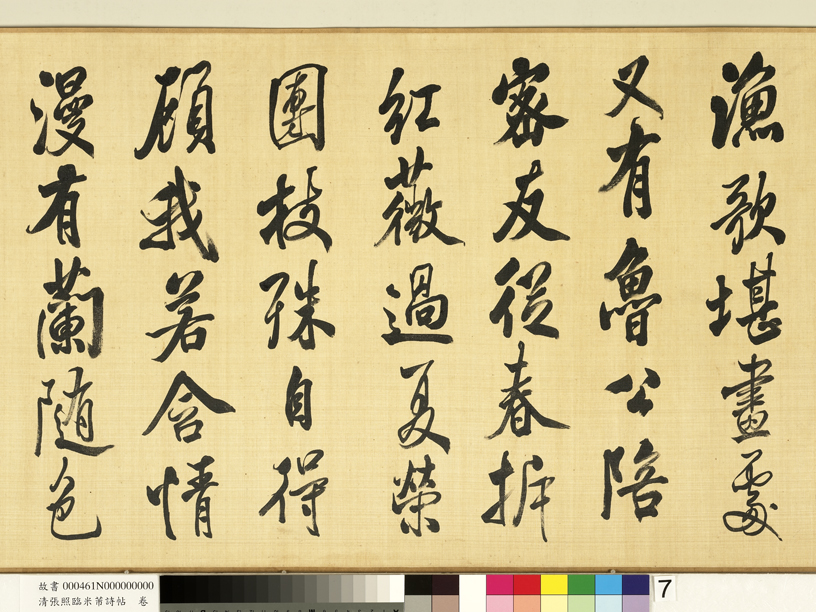 漁歌堪畫處
又有魯公陪
密友從春拆
紅薇過夏榮
團枝殊自得
顧我若含情
漫有蘭随色
故書 000461N000000000
清張照臨米芾詩帖 卷
7